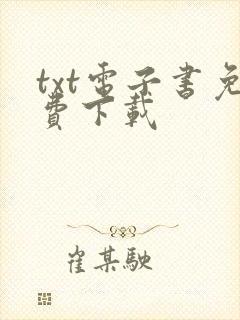 txt電子書免
費下載
崔某駛